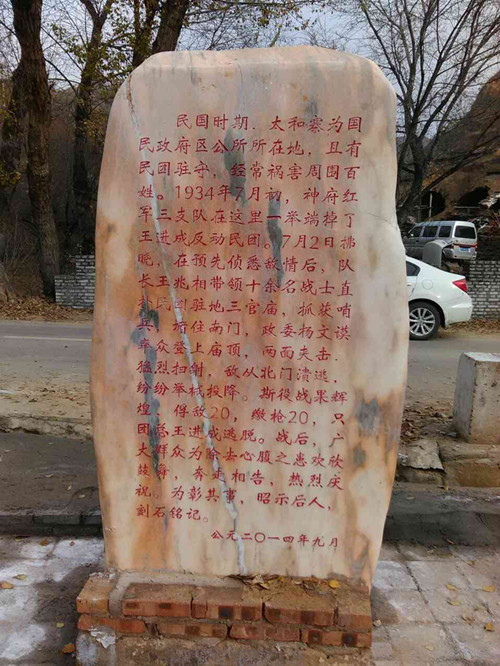 民国时期，太和寨为国
民政府区公所所在地，且有
民团驻守，经常祸害周围百
姓。1934年7月初，神府红
军三支队在这里一举端掉了
王进成反动民团。7月2日拂
晓，在预先侦悉敌情后，队
长王兆相带领十余名战士直
扑民团驻地三官庙，抓获哨
兵，堵住南门，政委杨文谟
率众登上庙顶，两面夹击，
猛烈扫射，敌从北门溃逃，
纷纷举械投降。斯役战果辉
煌，俘敌20，缴枪20，只
团总王进成逃脱。战后，广
大群众为除去心腹之患欢欣
鼓舞，奔走相告，热烈庆
祝。为彰其事，昭示后人，
刻石铭记。
公元二〇一四年九月